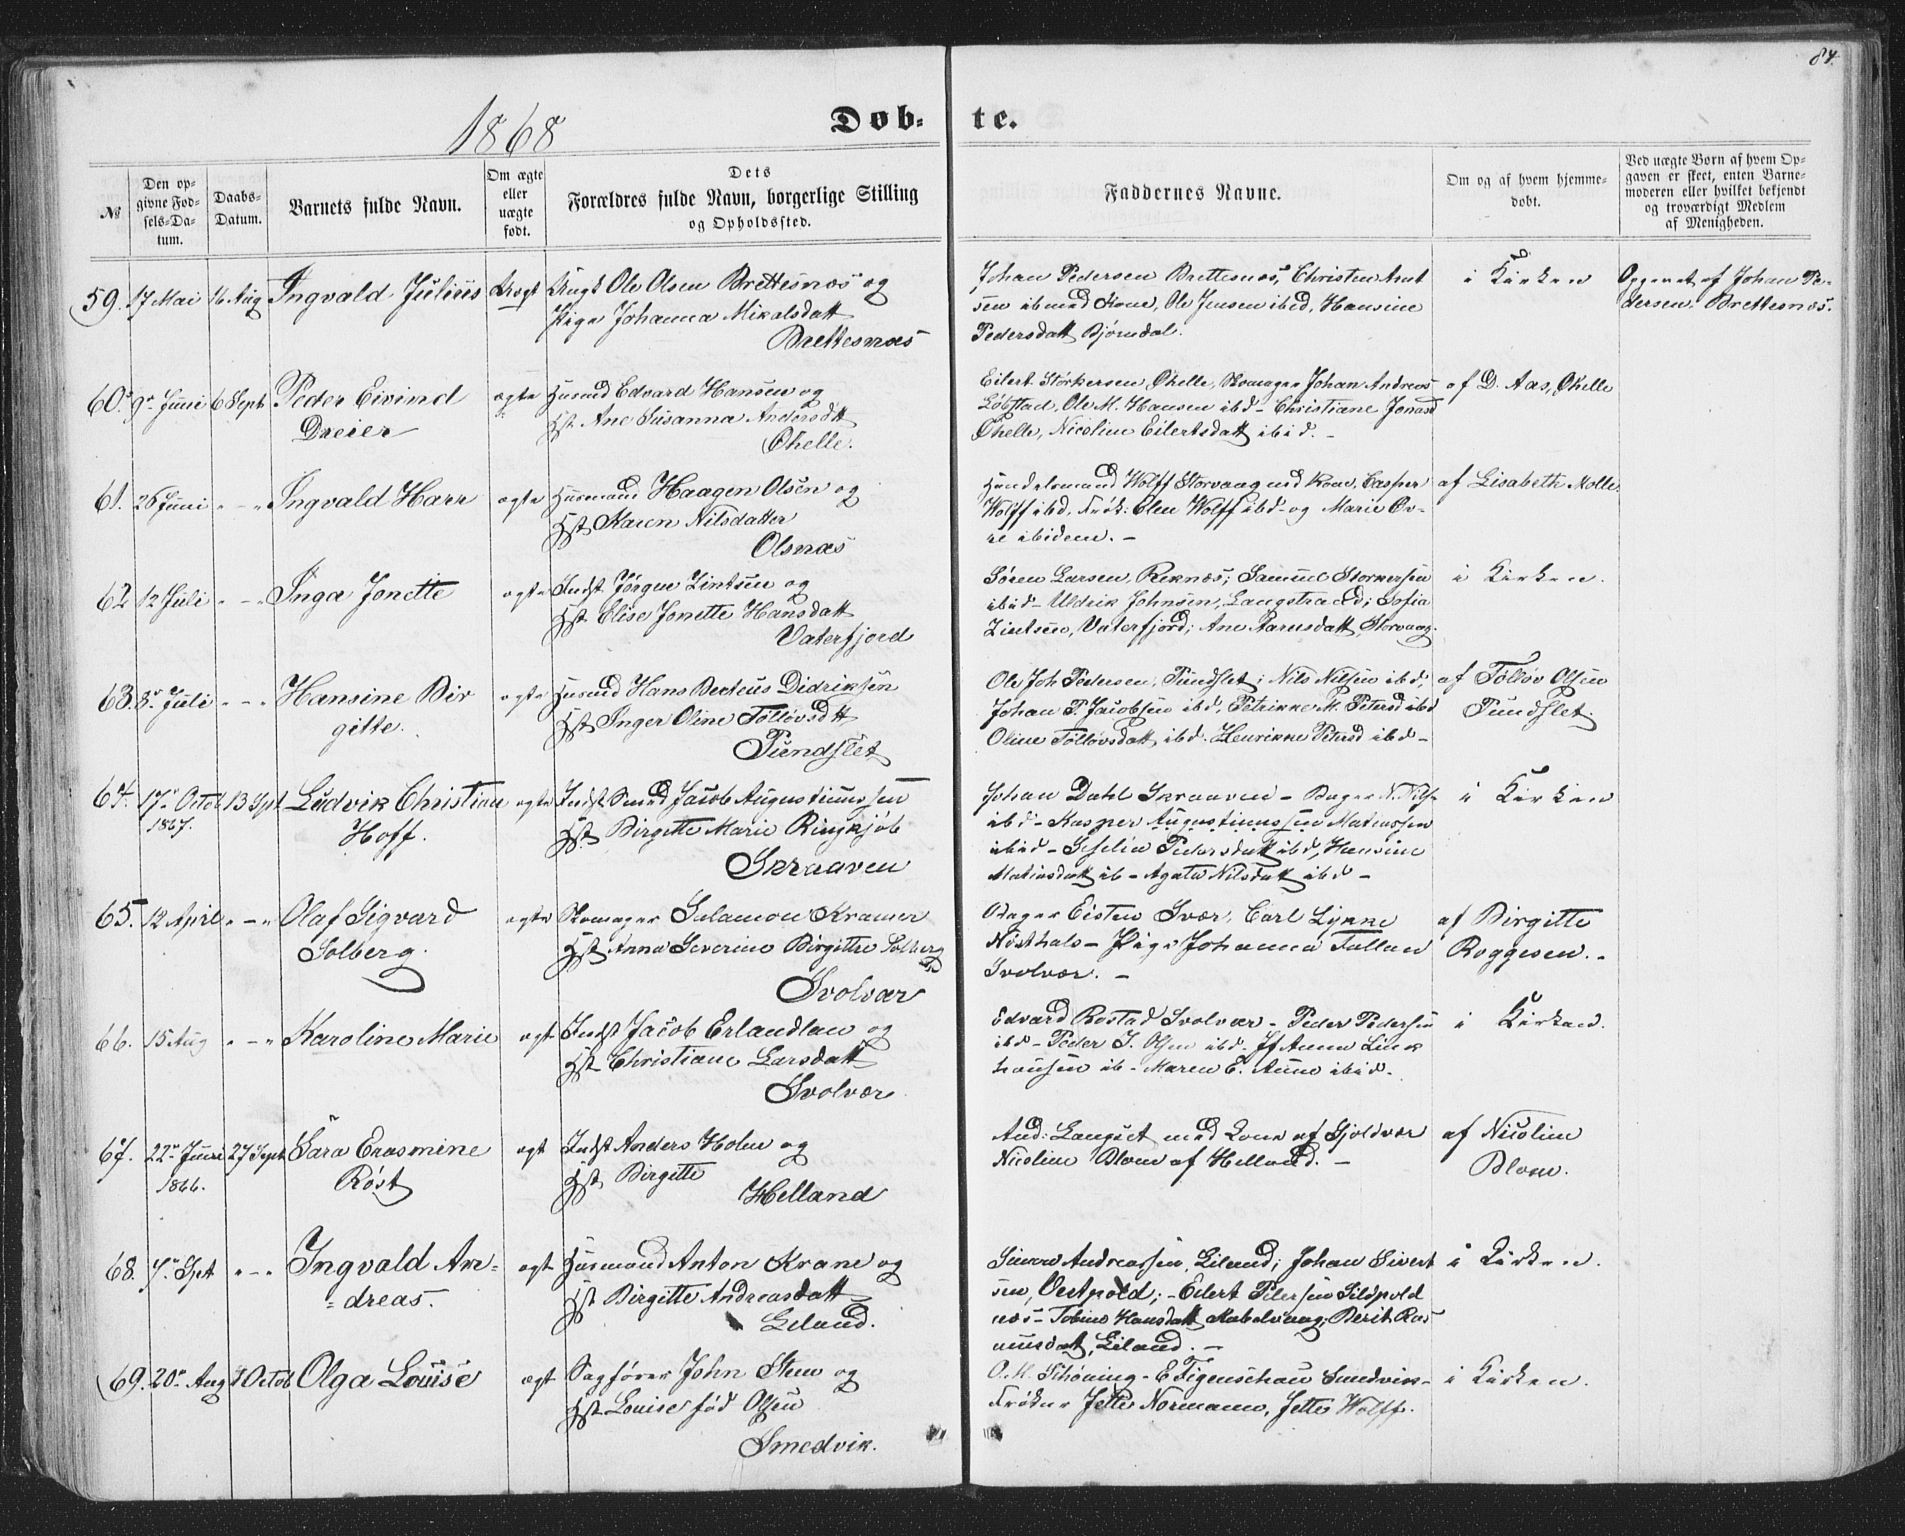 84.
1868
Døb-
te.
№
Den op-
givne Fød-
sels-Da-
tum.
Daabs-
Datum.
Barnets fulde Navn.
Om ægte
eller
uægte
født.
Dets
Forældres fulde Navn, borgerlige Stilling
og Opholdssted.
Faddernes Navne.
Om og af hvem hjemme-
døbt.
Ved uægte Børn af hvem Op-
gaven er skeet, enten Barne-
moderen eller hvilket bekjendt
og troværdigt Medlem
af Menigheden.
59. 17 Mai 16 Aug Ingvald Julius Uægt Ungk Ole Olsen Brettesnæs og
Pige Johanna Mikalsdatt
Brettesnæs
Johan Pedersen Brettesnæs, Christen Amt
sen ib med Kone, Ole Jensen ibid, Hansine
Pedersdatt Bjørndal.
i Kirken
Opgevet af Johan Pe-
dersen, Brettesnæs.
60. 9 Juni 6 Sept Peder Eivind
Dreier
ægte Husmd Edvard Hansen og
Hst Ane Susanna Andersdtt
Øhelle.
Eilert Størkersen Øhelle, Skomager Johan Andreas
Løbstad, Ole M. Hansen ibd - Christiane Jonasd
Øhelle, Nicoline Eilertsdatt ibid. -
af D. Aas, Øhelle
61. 26 Juni " - " Ingvald Harr ægte Husmand Haagen Olsen og
Hst Karen Nilsdatter
Olsnæs
Handelsmand Wolff Storvaag med Kone, Casper
Wolff ibd, Frøk: Elen Wolff ibd og Marie Ov-
re ibidem. -
af Lisabeth Molle
62 12 Juli " - " Inga Jonette ægte Indst Jørgen Zintsen og
Hst Elise Jonette Hansdatt
Vaterfjord
Søren Larsen, Reknæs; Samuel Storkersen
ibid - Uldrik Johnsen, Langstrand; Sofia
Zintsen, Vaterfjord; Ane Aarnsdatt, Storvaag.
i Kirken.
63. 8 Juli " - " Hansine Bir
gitte.
ægte Husmd Hans Berteus Didriksen
Hst Inger Oline Tolløvsdtt
Pundslet
Ole Joh Pedersen, Pundslet; Nils Nilsen ibd;
Johan P. Jacobsen ibd, Petrikke M. Petersd ibd
Oline Tolløvsdatt ibd. Henrikke Petersd ibd -
af Tolløv Olsen
Pundslet.
64. 17 Octob 13 Spt Ludvik Christian
1867.
Hoff.
ægte Indst Smed Jacob Augustinussen
Hst Birgette Marie Ringkjøb
Skraaven
Johan Dahl Skraaven - Bager N. Nils
ibd - Kasper Augustinussen Matiassen
ibid - Gjelin Pedersdatt ibd, Hansine
Matiasdatt ib - Agata Nilsdatt ibd -
i Kirken
65. 12 April " - " Olaf Sigvard
Solberg.
ægte Skomager Salamon Kramer
Hst Anna Severine Birgitte Solberg
Svolvær
Bager Eisten Svær, Carl Lynne
Nosthals - Pige Johanna Fallan
Svolvær. -
af Birgitte
Roggesen. -
66. 15 Aug " - " Karoline Marie ægt Indst Jacob Erlandlan og
Hst Christiane Larsdatt
Svolvær
Edvard Rostad Svolvær - Peder Pedersen
ibd - Peder J. Olsen ibd - Jf Anna Link
hausen ib - Maren E. Aune ibid -
i Kirken.
67. 22 Juni 27 Sept Sara Erasmine
1866.
Røst
ægt Indst Anders Holm og
Hst Birgitte
Helland
And: Langset med Kone af Gjoldvær
Nicoline Blom af Helland. -
af Nicoline
Blom.
68. 7 Spt " - " Ingvald An-
dreas.
ægt Husmand Anton Krane og
Hst Birgitte Andreasdatt
Leland.
Simon Andreassen, Liland; Johan Sivert
sen, Oestpold; - Edert Pedersen Sildpold
næs - Tobine Hansdatt Mabelvaag; Berit Ras
musdatt, Liland. -
i Kirken.
69. 20 Aug 4 Octob Olga Louise ægt Sagfører John Stem og
Hst Louise fød Olsen
Smedvik.
O. M. Schøning - E Figenschau Sundvik -
Frøkner Jette Normann, Jette Wolff.
i Kirken.